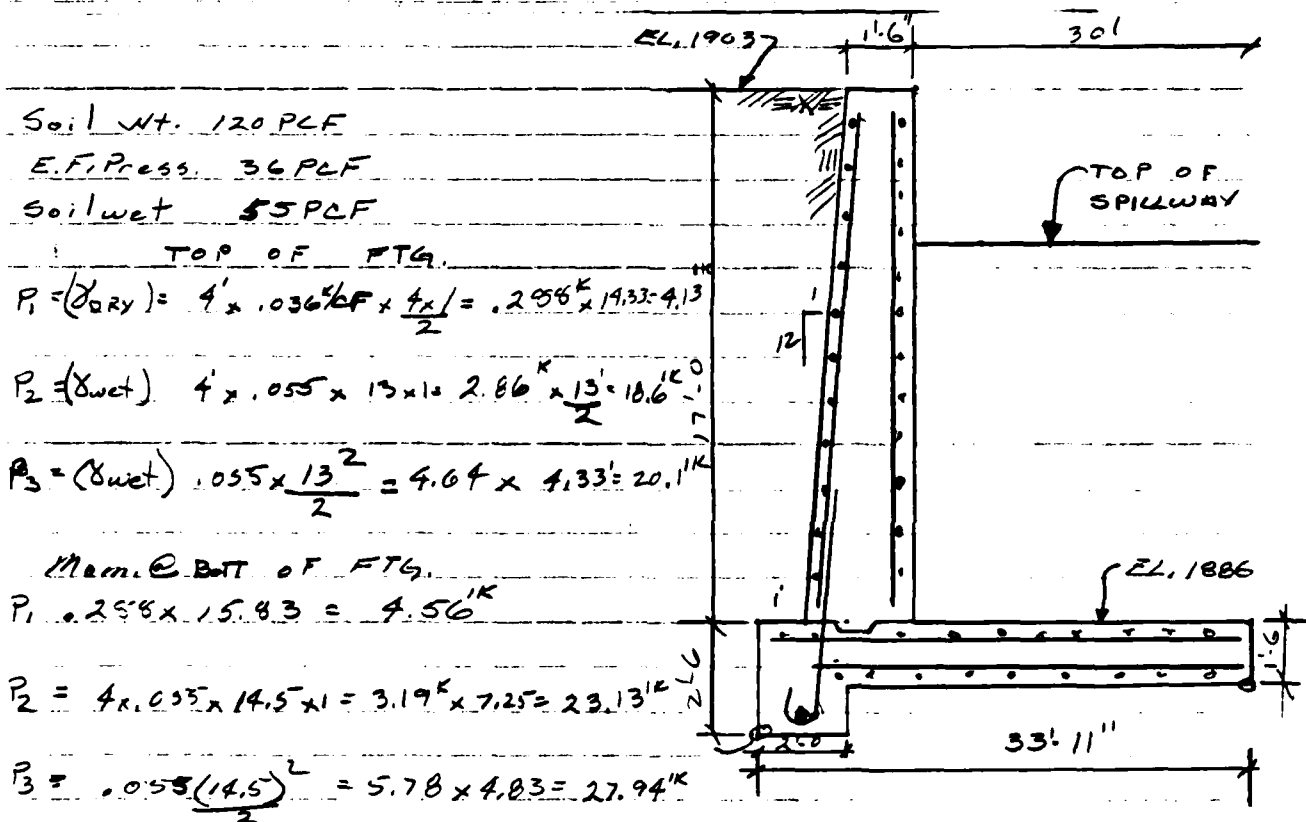 EL. 1903
1'-6"
30'
Soil Wt. 120 PCF
E.F. Press. 36 PCF
Soil wet 55 PCF
TOP OF SPILLWAY
TOP OF FTG.
P₁ = (γDRY) = 4' x .036ᴷ/CF x 4x1/2 = .288ᴷ x 14.33 = 4.13
1
12
P₂ = (γwet) 4' x .055 x 13 x 1 = 2.86ᴷ x 13'/2 = 18.6'ᴷ
17'-0
P₃ = (γwet) .055 x 13²/2 = 4.64 x 4.33' = 20.1'ᴷ
Mom. @ BOTT OF FTG.
EL. 1886
P₁ .288 x 15.83 = 4.56'ᴷ
1'-6
2'-6
P₂ = 4x.055 x 14.5 x1 = 3.19ᴷ x 7.25 = 23.13'ᴷ
2'-0
33'-11"
P₃ = .055(14.5)²/2 = 5.78 x 4.83 = 27.94'ᴷ